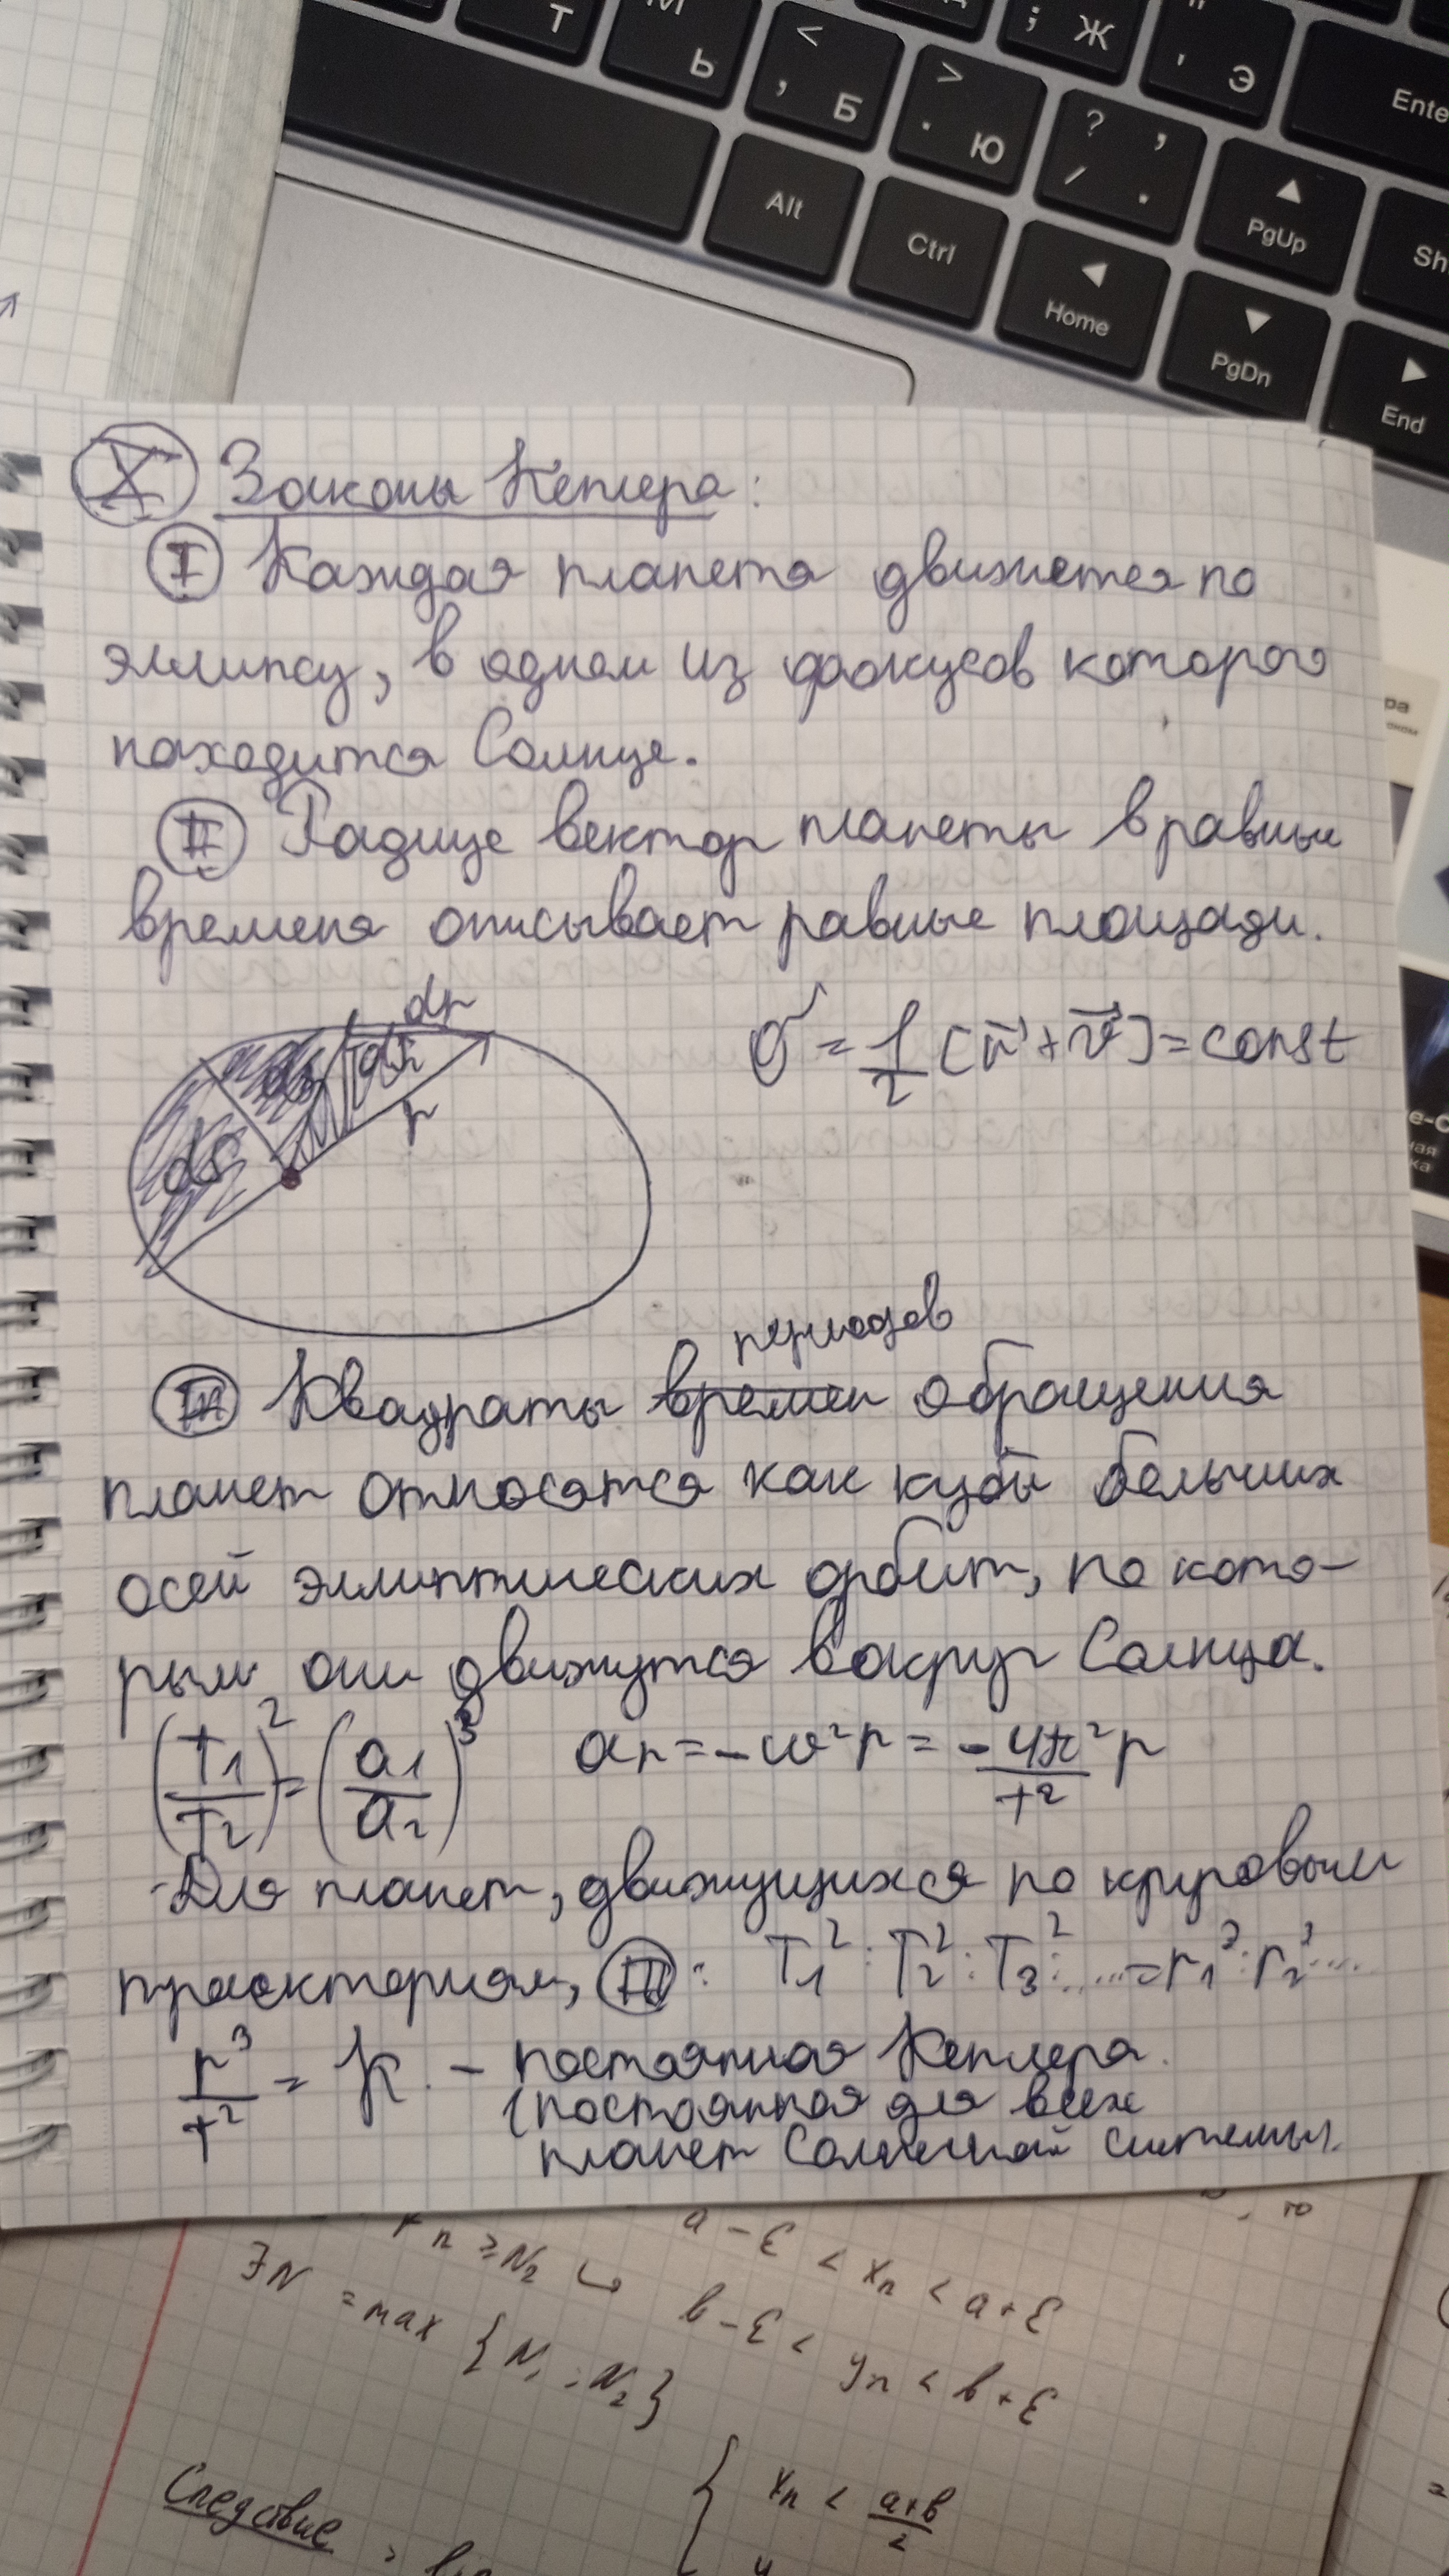 Т
М Ь
< , Б
> . Ю
; Ж
" ' Э
Enter
? / , .
Alt
Ctrl
Home
PgUp
PgDn
Sh
End
X Законы Кеплера:
I Каждая планета движется по
эллипсу, в одном из фокусов которого
находится Солнце.
II Радиус вектор планеты в равные
времена описывает равные площади.
dr
dS dS dS
r
σ = 1/2 [r⃗ + v⃗] = const
периодов
III Квадраты времен обращения
планет относятся как кубы больших
осей эллиптических орбит, по кото-
рым они движутся вокруг Солнца.
(T₁/T₂)² = (a₁/a₂)³ aₙ = -ω²r = -4π²/T² r
Для планет, движущихся по круговым
траекториям, III: T₁² : T₂² : T₃² : ... = r₁³ : r₂³ ...
r³/T² = K - постоянная Кеплера
(постоянная для всех
планет Солнечной системы).
n ≥ N₂ ↪ a - ε < xₙ < a + ε
∃N = max {N₁; N₂} b - ε < yₙ < b + ε
Следствие
xₙ < a+b/2